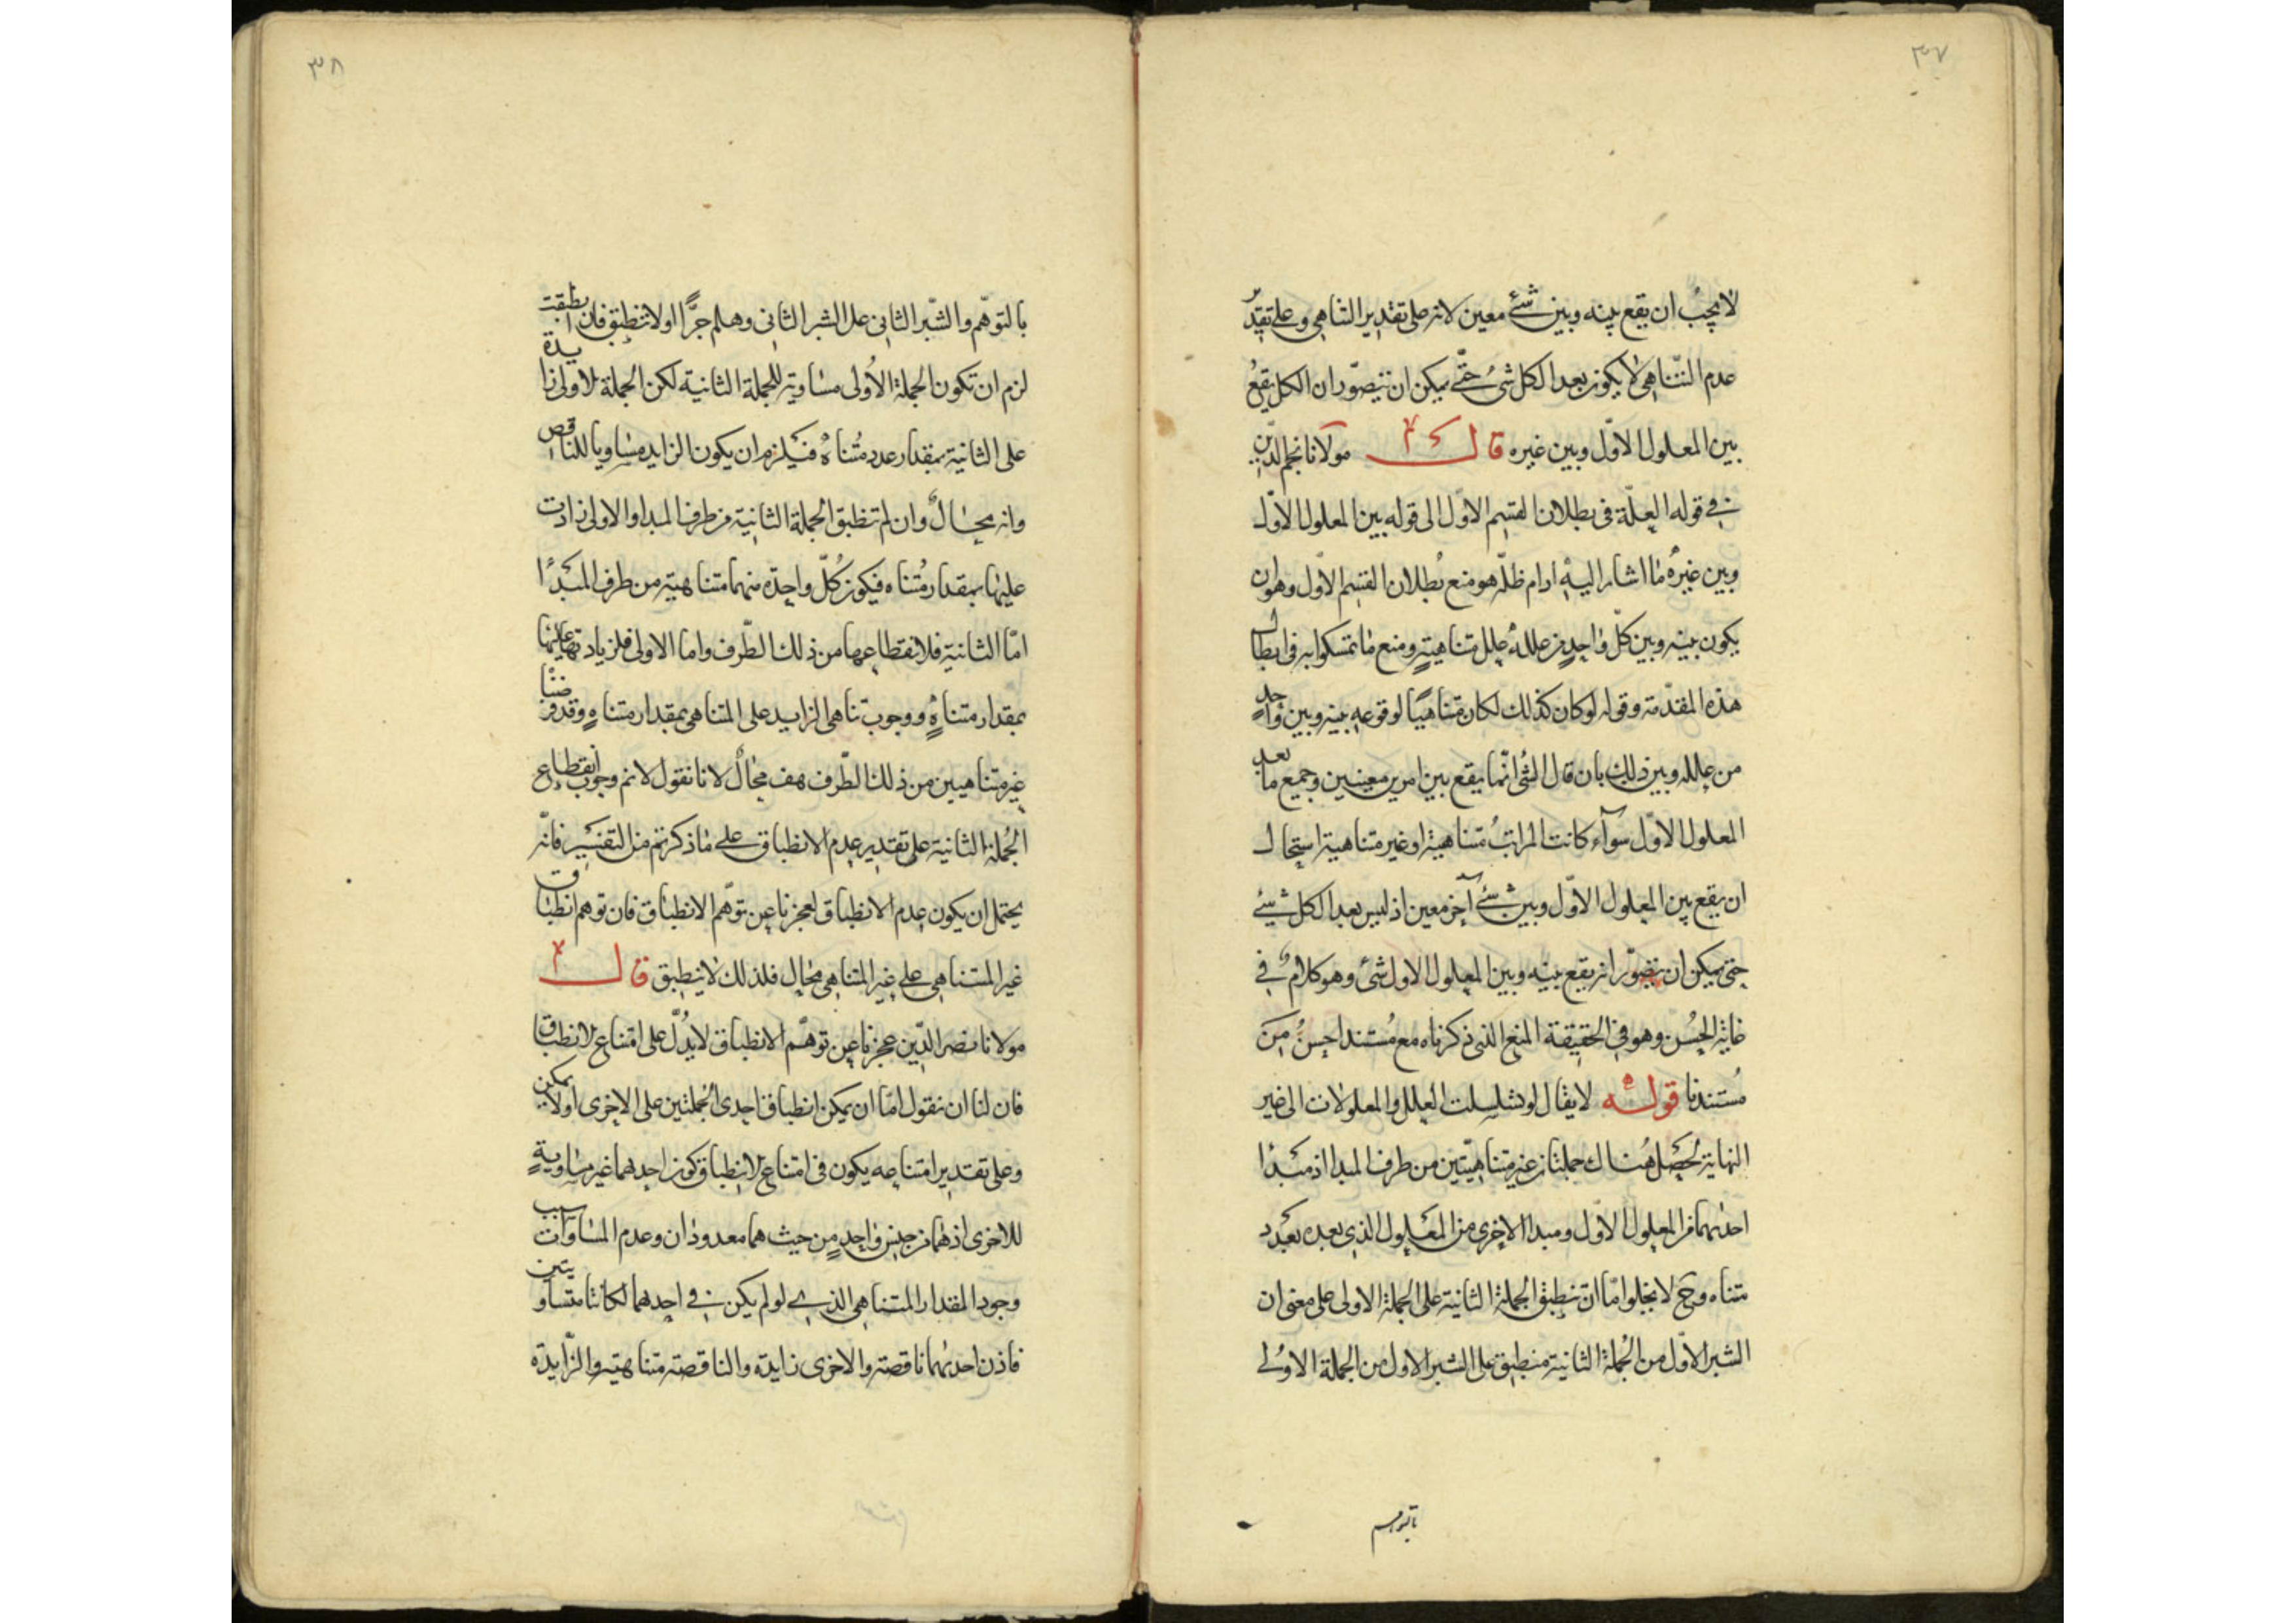 ٣٧
لا يجب ان يقع بينه وبين شئ معين لانه على تقدير التناهى وعلى تقدير
عدم التناهى لا يكون بعد الكل شئ حتى يمكن ان يتصور ان الكل يقع
بين المعلول الاول وبين غيره قال مولانا نجم الدين
فى قوله العلة فى بطلان القسم الاول الى قوله بين المعلول الاول
وبين غيره ما اشار اليه ادام ظله هو منع بطلان القسم الاول وهو ان
يكون بينه وبين كل واحد من علله علل متناهية ومنع ما تمسكوا به فى ابطال
هذه المقدمة وقوله لو كان كذلك لكان متناهيا لوقوعه بينه وبين واحد
من علله وبين ذلك بان قال الشئ انما يقع بين امرين معينين وجميع ما بعد
المعلول الاول سوآء كانت المراتب متناهية او غير متناهية استحال
ان يقع بين المعلول الاول وبين شئ آخر معين اذ ليس بعد الكل شيئ
حتى يمكن ان يتصور انه يقع بينه وبين المعلول الاول شئ وهو كلام فى
غاية الحسن وهو فى الحقيقة المنع الذى ذكرناه مع مستند احسن من
مستندنا قوله لا يقال لو تسلسلت العلل والمعلولات الى غير
النهاية لحصل هناك جملتان غير متناهيتين من طرف المبدا اذ مبدا
احديهما من المعلول الاول ومبدا الاخرى من المعلول الذى بعده بعدد
متناه وح لا يخلوا اما ان تنطبق الجملة الثانية على الجملة الاولى على معنى ان
الشبر الاول من الجملة الثانية منطبق على الشبر الاول من الجملة الاولى
بالتوهم
٣٨
بالتوهم والشبر الثانى على الشبر الثانى وهلم جرا او لا تنطبق فان انطبقت
لزم ان تكون الجملة الاولى مساوية للجملة الثانية لكن الجملة الاولى زايدة
على الثانية بمقدار عدد متناه فيلزم ان يكون الزايد مساويا للناقص
وانه محال وان لم تنطبق الجملة الثانية من طرف المبدا والاولى زادت
عليها بمقدار متناه فيكون كل واحدة منهما متناهية من طرف المبدا
اما الثانية فلانقطاعها من ذلك الطرف واما الاولى فلزيادتها عليها
بمقدار متناه ووجوب تناهى الزايد على المتناهى بمقدار متناه وقد فرضنا
غير متناهيين من ذلك الطرف هف محال لانا نقول لا نم وجوب انقطاع
الجملة الثانية على تقدير عدم الانطباق على ما ذكرتم من التفسير فانه
يحتمل ان يكون عدم الانطباق لعجزنا عن توهم الانطباق فان توهم انطباق
غير المتناهى على غير المتناهى محال فلذلك لا ينطبق قال
مولانا نصر الدين عجزنا عن توهم الانطباق لا يدل على امتناع الانطباق
فان لنا ان نقول اما ان يمكن انطباق احدى الجملتين على الاخرى او لا يمكن
وعلى تقدير امتناعه يكون فى امتناع الانطباق كون احدهما غير مساوية
للاخرى اذ هما من جنس واحد من حيث هما معدودان وعدم المساوات سبب
وجود المقدار المتناهى الذى لو لم يكن فى احدهما لكانتا متساويتين
فاذن احديهما ناقصة والاخرى زايدة والناقصة متناهية والزايدة